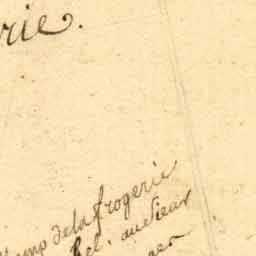 rie.
amp de la frogerie
hel. au sieur